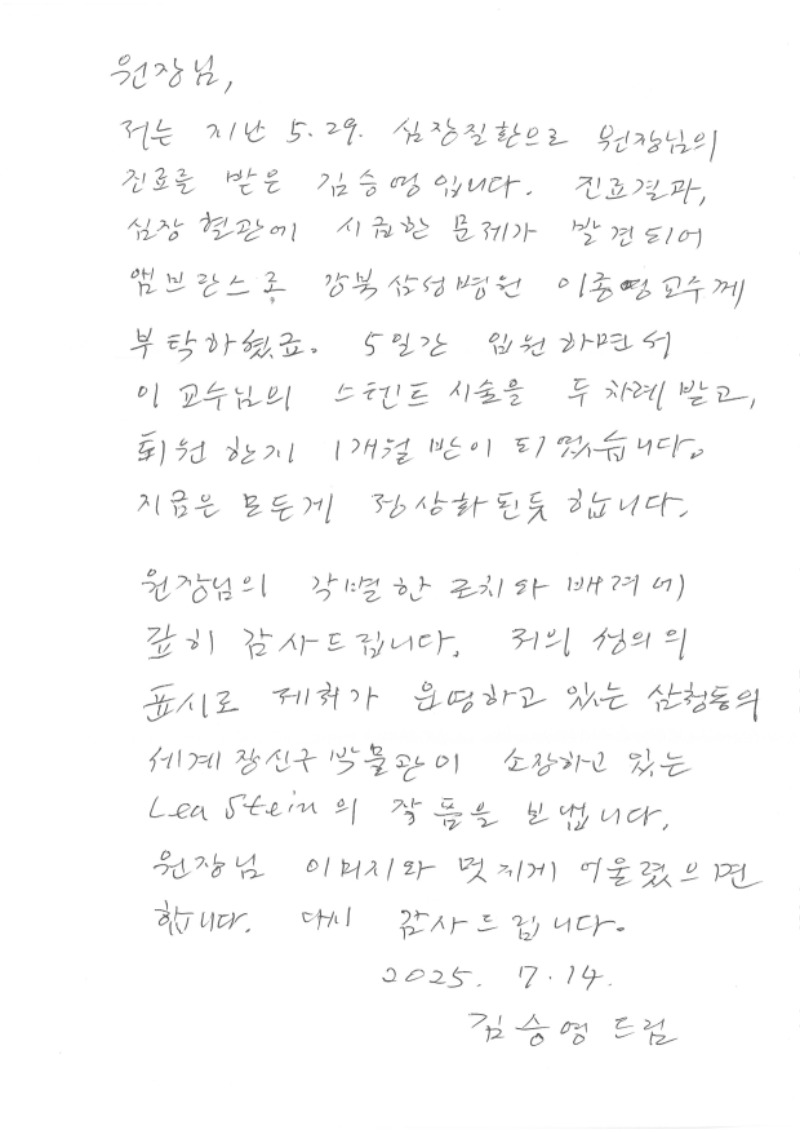 원장님,
저는 지난 5.29. 심장질환으로 원장님의
진료를 받은 김승영입니다. 진료결과,
심장 혈관에 시급한 문제가 발견되어
앰브란스로 강북삼성병원 이종영교수께
부탁하셨죠. 5일간 입원하면서
이 교수님의 스텐트 시술을 두 차례 받고,
퇴원 한지 1개월 반이 되었습니다.
지금은 모든게 정상화된듯 합니다.
원장님의 각별한 조치와 배려에
깊히 감사드립니다. 저의 성의의
표시로 제처가 운영하고 있는 삼청동의
세계장신구박물관이 소장하고 있는
Lea Stein의 작품을 보냅니다.
원장님 이미지와 멋지게 어울렸으면
합니다. 다시 감사드립니다.
2025. 7.14.
김승영 드림